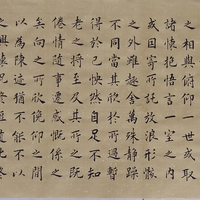 之相與俯仰一世或取
諸懷抱悟言一室之內
或因寄所託放浪形骸
之外雖趣舍萬殊靜躁
不同當其欣於所遇暫
得於己快然自足不知
老之將至及其所之既
倦情隨事遷感慨係之
矣向之所欣俯仰之間
以為陳迹猶不能不以
之興懷況脩短隨化終